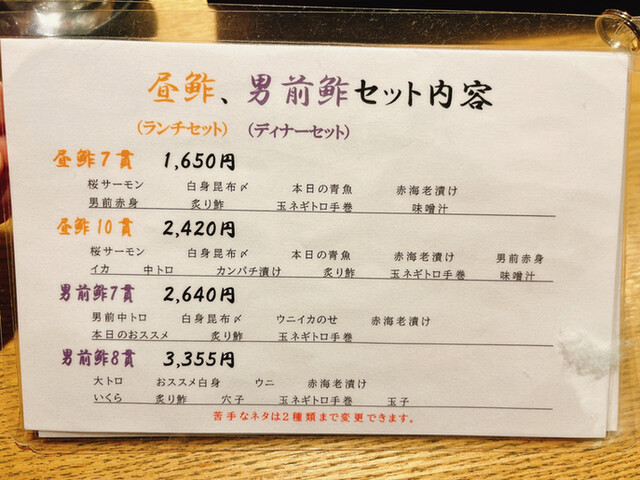 昼鮓、男前鮓セット内容
(ランチセット) (ディナーセット)
昼鮓7貫 1,650円
桜サーモン 白身昆布〆 本日の青魚 赤海老漬け
男前赤身 炙り鮓 玉ネギトロ手巻 味噌汁
昼鮓10貫 2,420円
桜サーモン 白身昆布〆 本日の青魚 赤海老漬け 男前赤身
イカ 中トロ カンパチ漬け 炙り鮓 玉ネギトロ手巻 味噌汁
男前鮓7貫 2,640円
男前中トロ 白身昆布〆 ウニイカのせ 赤海老漬け
本日のおススメ 炙り鮓 玉ネギトロ手巻
男前鮓8貫 3,355円
大トロ おススメ白身 ウニ 赤海老漬け
いくら 炙り鮓 穴子 玉ネギトロ手巻 玉子
苦手なネタは2種類まで変更できます。